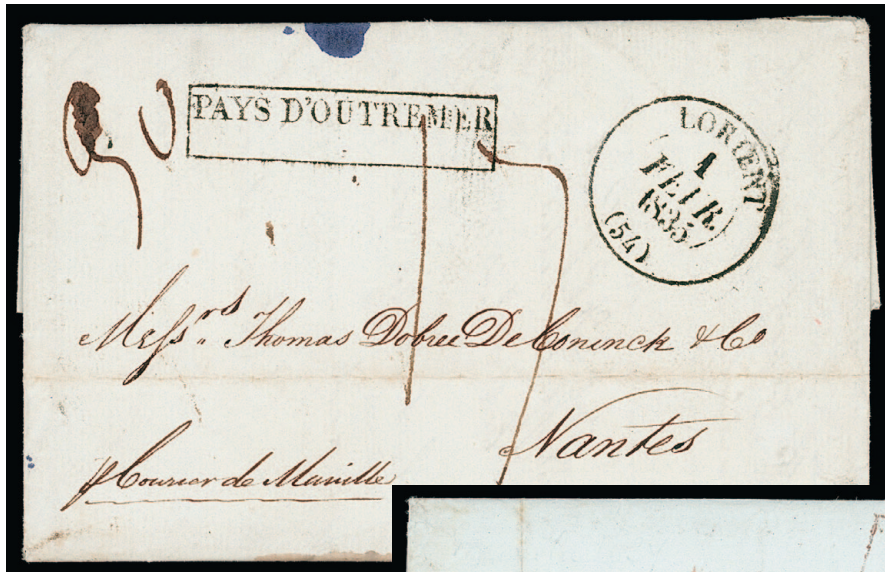 PAYS D'OUTREMER
LORIENT
1
FEVR.
1835
(54)
17
Messrs Thomas Dobree DeConinck & Co
Nantes
p Courier de Manille